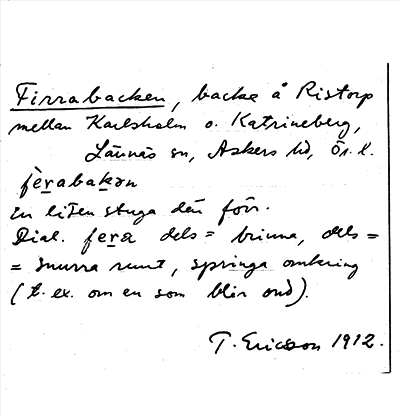 Firrabacken, backe å Ristorp
mellan Karlsholm o. Katrineberg,
Lännäs sn, Askers hd, Ör. l.
fèrabakən
En liten stuga där förr.
Dial. fera dels = brinna, dels =
= snurra runt, springa omkring
(t. ex. om en som blir ond).
T. Ericsson 1912.